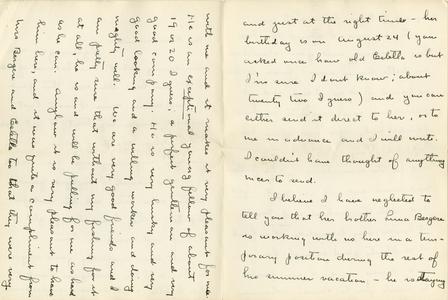 and just at the right times - her
birthday is on August 24 (you
asked once how old Estella is but
I'm sure I dont know; about
twenty two I guess) and you can
either send it direct to her, or to
me in advance and I will write.
I couldn't have thought of anything
nicer to send.
I believe I have neglected to
tell you that her brother Luna Bergere
is working with us here in a tem-
porary position during the rest of
his summer vacation - he is staying
with me and it makes it very pleasant for me.
He is an exceptional young fellow of about
19 or 20 I guess, a perfect gentleman and
good company. He is very husky and very
good looking and a willing worker and doing
mighty well. We are very good friends and I
am pretty sure that without my fishing for it
at all, he is and will be pulling for me as hard
as he can. Anyhow it is very pleasant to have
him here, and it was quite a compliment from
Mrs Bergere and Estella too that they were very